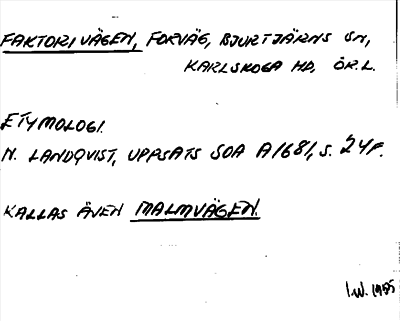 FAKTORIVÄGEN, FORVÄG, BJURTJÄRNS SN,
KARLSKOGA HD, ÖR.L.
ETYMOLOGI.
N. LANDQVIST, UPPSATS SOA A1681, S. 24F.
KALLAS ÄVEN MALMVÄGEN.
I.W. 1985